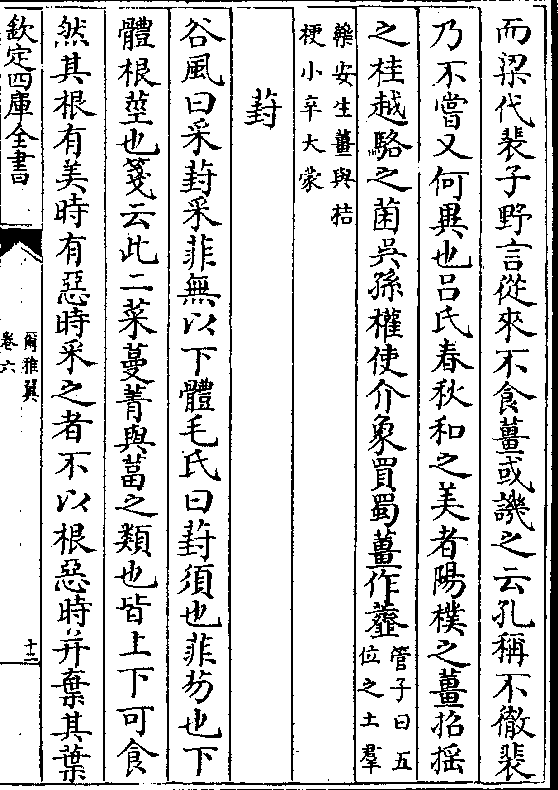 而梁代裴子野言從來不食薑或譏之云孔稱不徹裴
乃不嘗又何異也吕氏春秋和之美者陽樸之薑招揺
之桂越駱之菌吳孫權使介象買蜀薑作虀管子曰五
位之土羣
藥安生薑與桔
梗小辛大蒙
葑
谷風曰采葑采菲無以下體毛氏曰葑須也菲芴也下
體根莖也箋云此二菜蔓菁與葍之類也皆上下可食
然其根有美時有惡時采之者不以根惡時并棄其葉
欽定四庫全書
爾雅翼
卷六
十二